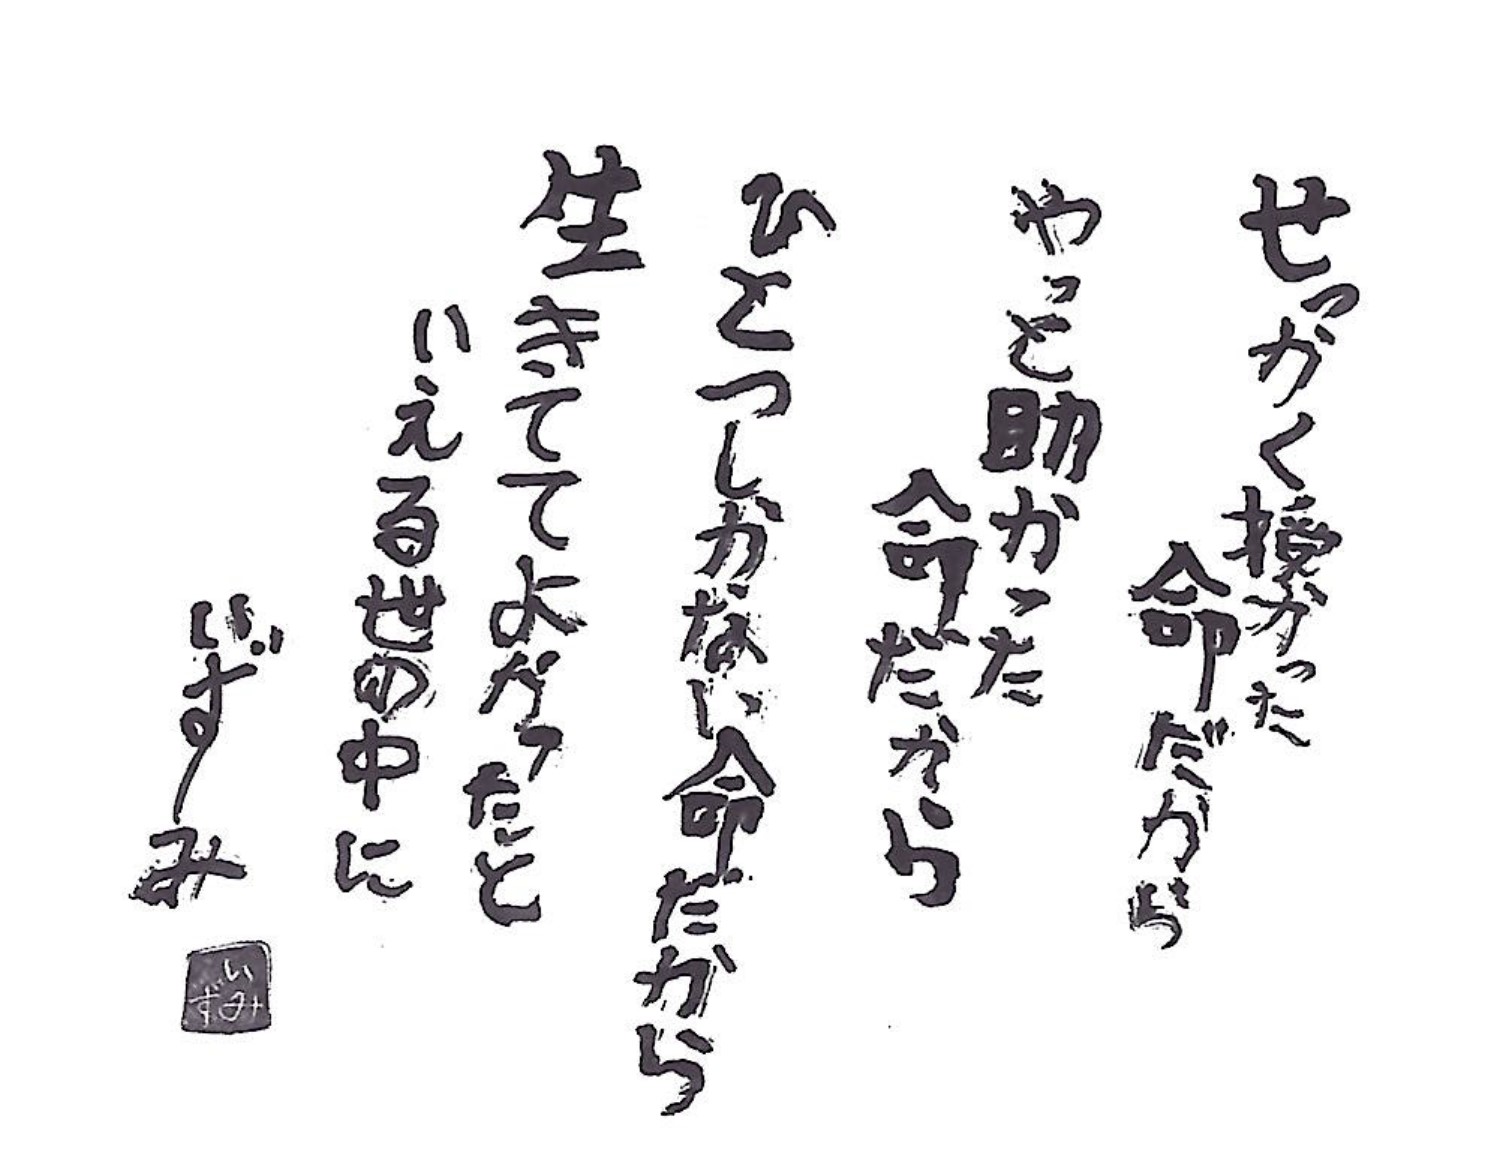 せっかく授かった
命だから
やっと助かった
命だから
ひとつしかない命だから
生きててよかったと
いえる世の中に
いずみ
いずみ